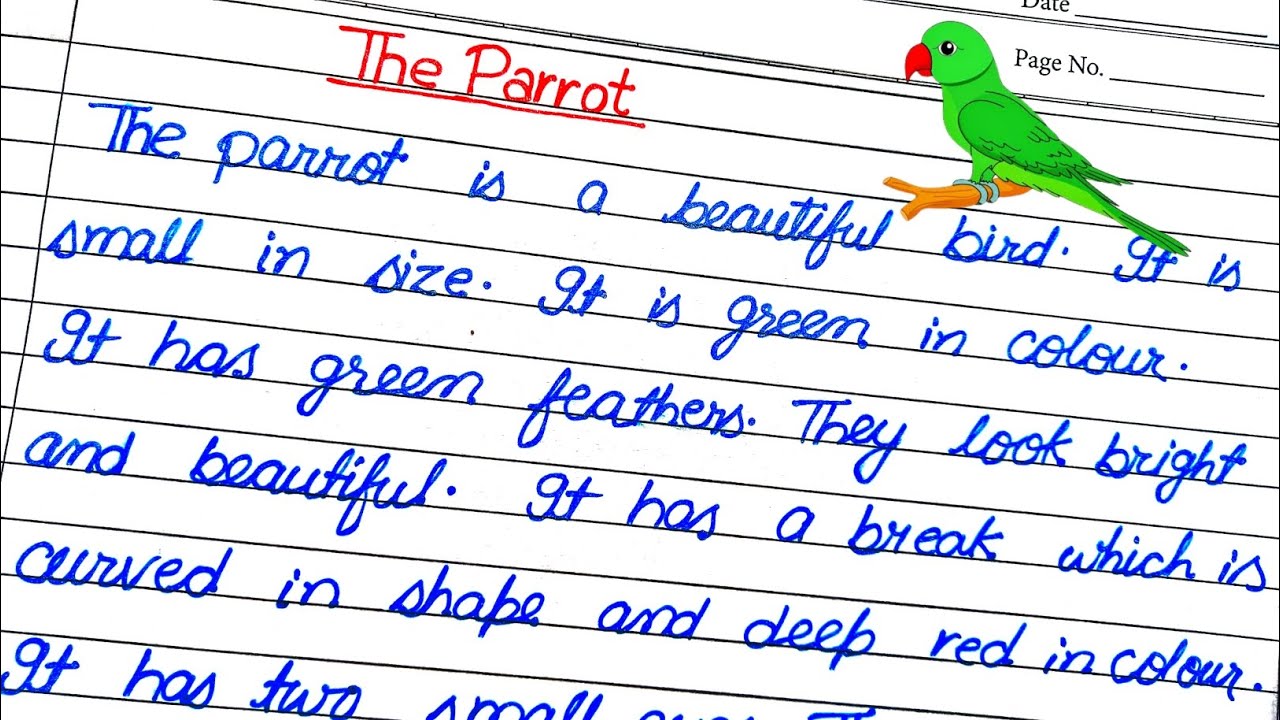 Date
Page No.
The Parrot
The parrot is a beautiful bird. It is
small in size. It is green in colour.
It has green feathers. They look bright
and beautiful. It has a break which is
curved in shape and deep red in colour.
It has two small eyes.